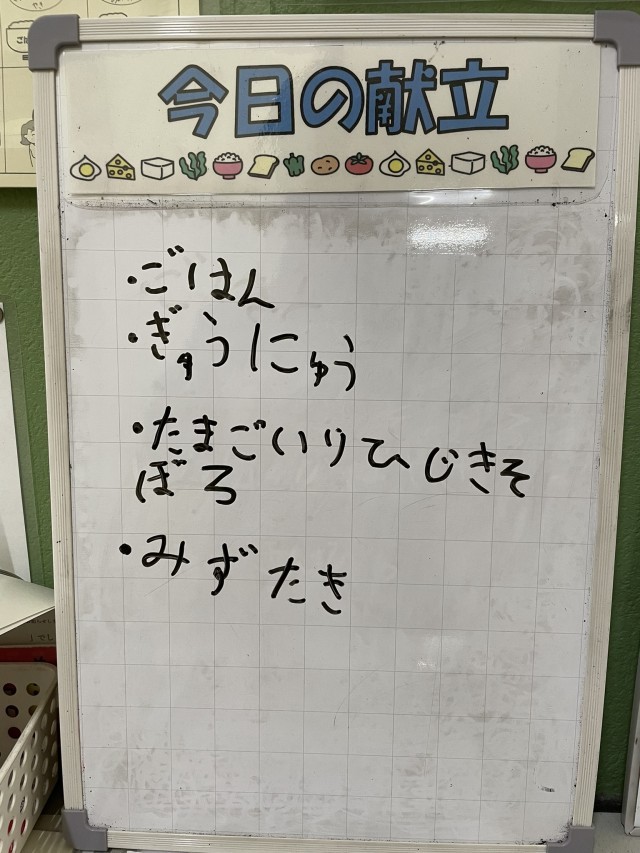 今日の献立
・ごはん
・ぎゅうにゅう
・たまごいりひじきそ
ぼろ
・みずたき